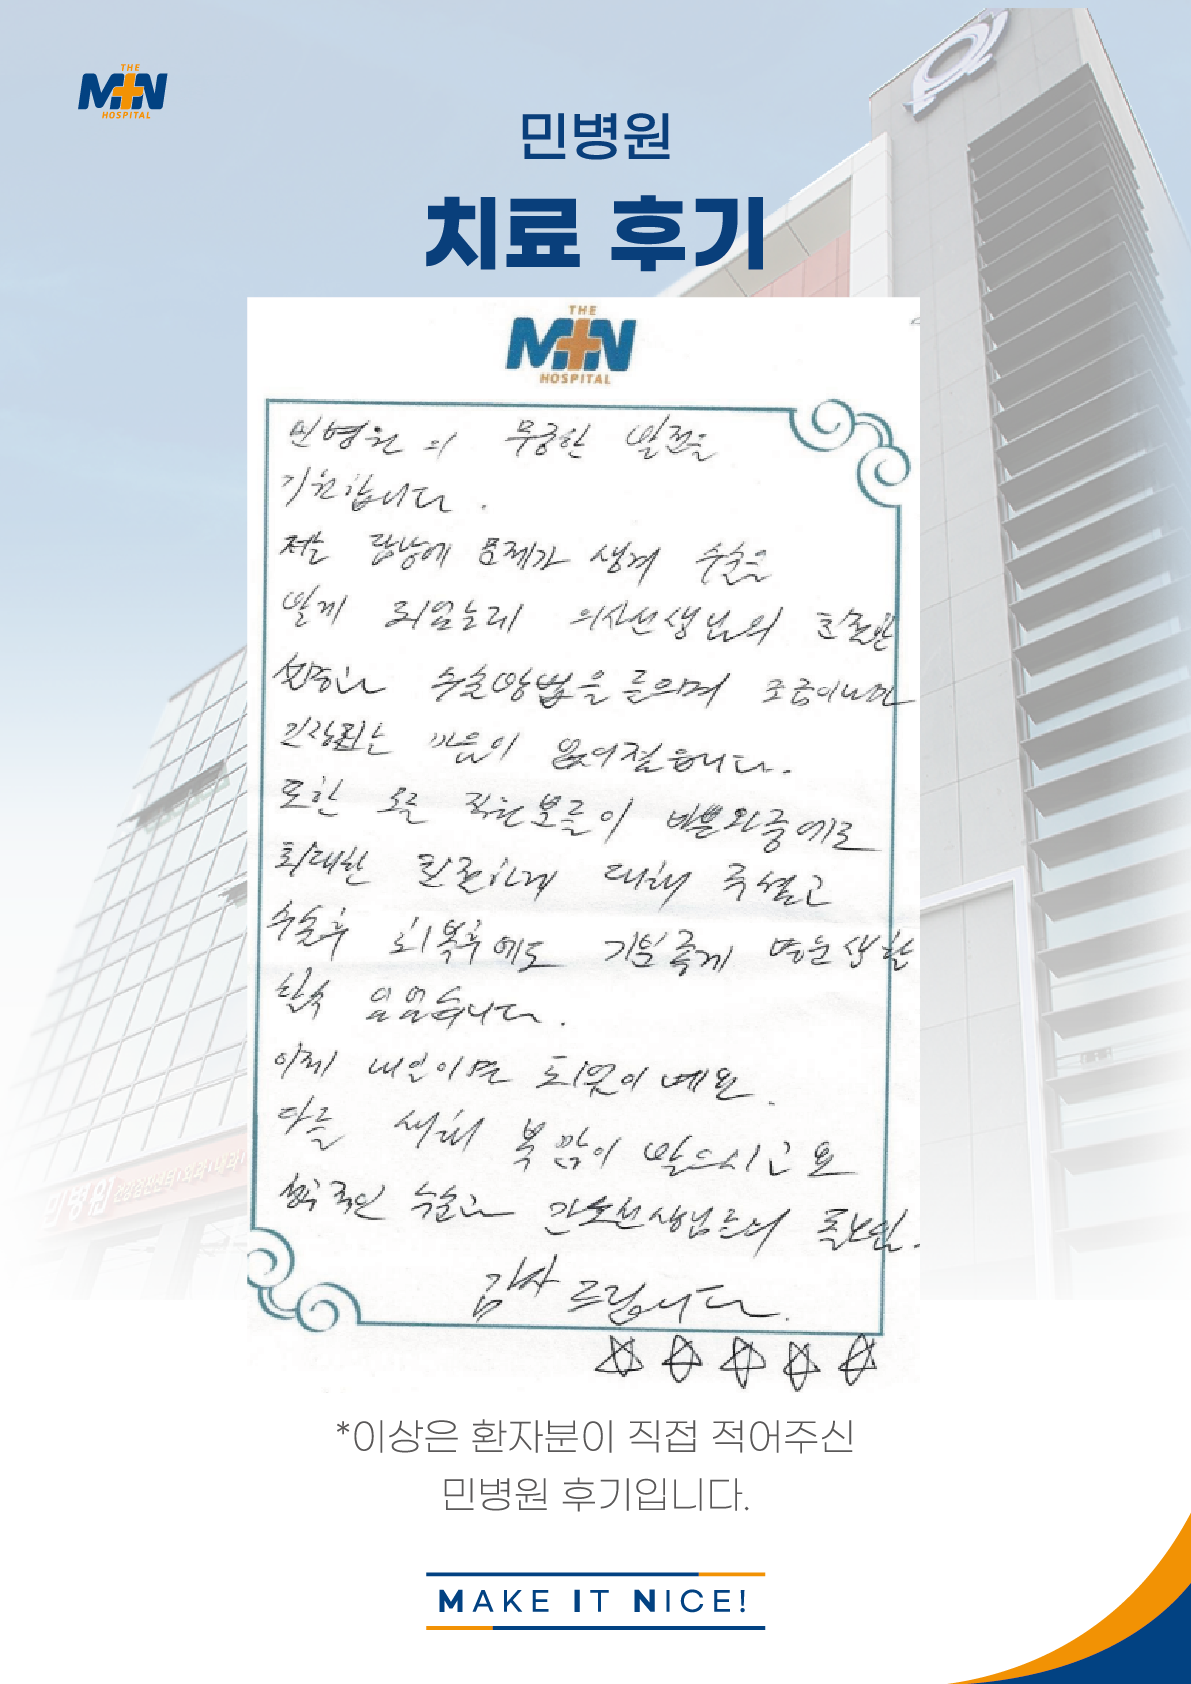 THE
MIN
HOSPITAL
민병원
치료 후기
THE
MIN
HOSPITAL
민병원의 무궁한 발전을
기원합니다.
저는 담낭에 문제가 생겨 수술을
받게 되었는데 의사선생님의 친절한
설명과 수술방법을 들으며 조금이나마
긴장되는 마음이 없어졌습니다.
또한 모든 직원분들이 바쁜와중에도
최대한 친절하게 대해 주셨고
수술후 회복후에도 기분좋게 병원생활
할수 있었습니다.
이제 내일이면 퇴원이예요.
다들 새해 복 많이 받으시고요
헌신적인 수술과 간호선생님들의
감사드립니다.
☆☆☆☆☆
민병원 건강검진센터 외과 내과
*이상은 환자분이 직접 적어주신
민병원 후기입니다.
MAKE IT NICE!